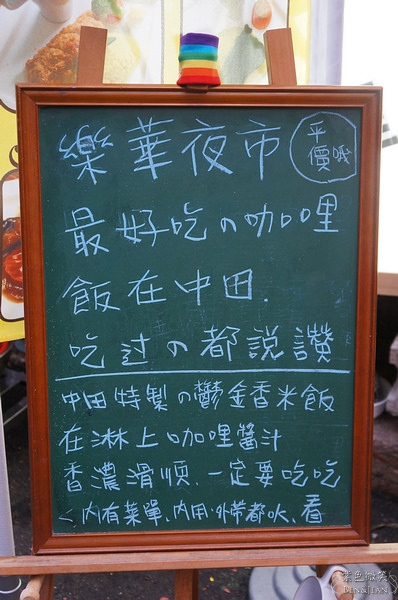 樂華夜市
平價哦
最好吃の咖哩
飯在中田.
吃过の都說讚
中田特製の鬱金香米飯
在淋上咖哩醬汁
香濃滑順.一定要吃吃
內有菜單、內用.外帶都ok、看
紫色微笑
BEN&JEAN